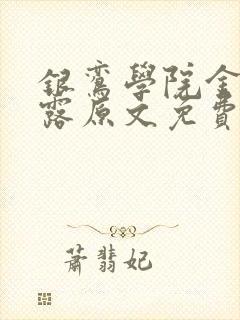 銀鸞學院金
露原文免費
蕭翡妃